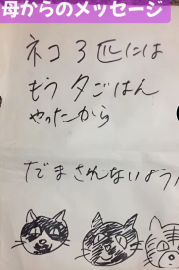 母からのメッセージ
ネコ3匹には
もう夕ごはん
やったから
だまされないよう!